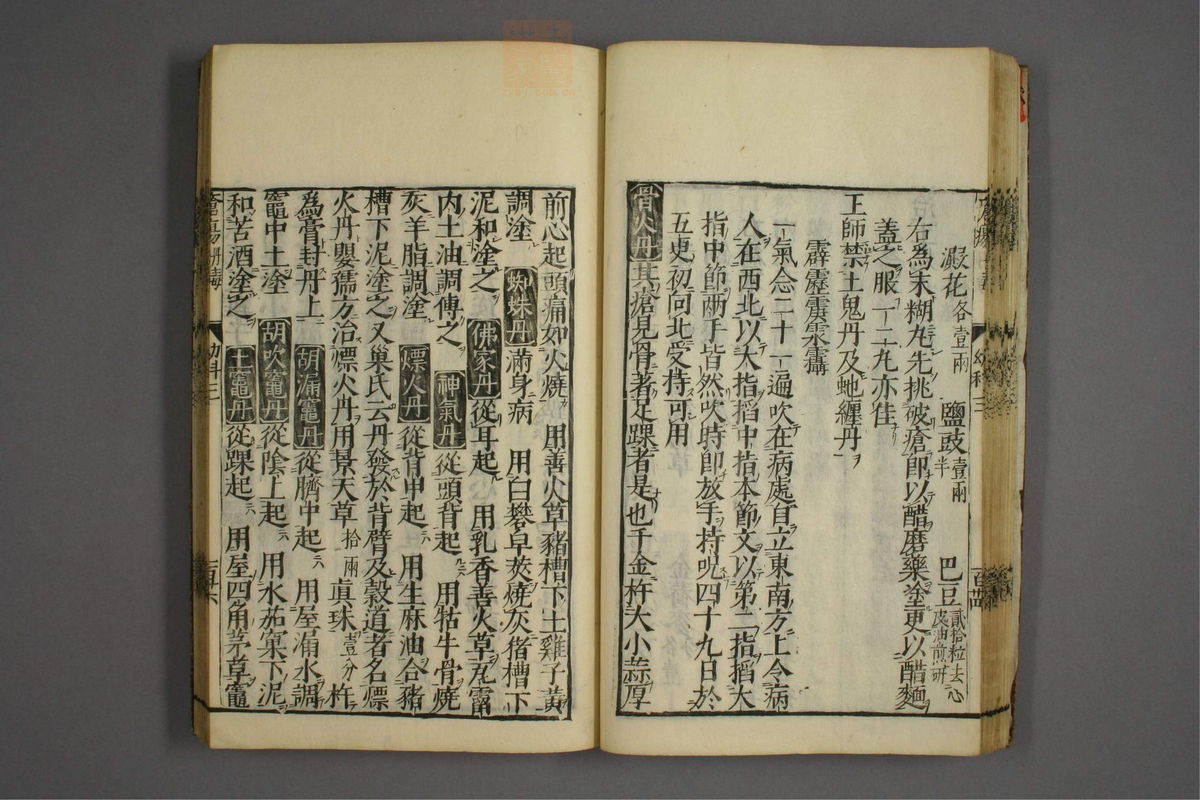 澱花各壹兩　鹽豉壹兩半　巴豆貳拾粒去心皮油煎研
右為末糊丸先挑破瘡即以醋磨藥塗更以醋麵
蓋之服一二九亦佳
王師禁土鬼丹及虵纏丹
霹靂
一氣念二十一遍吹在病處自立東南方上令病
人在西北以大指搯中指本節文以第二指搯大
指中節兩手皆然吹時即放手持呪四十九日於
五更初向北受持可用
骨火丹其瘡見骨著足踝者是也千金杵大小蒜厚
前心起頭痛如火燒　用善火草豬槽下土雞子黃
調塗　蜘蛛丹滿身病　用白礬皁莢燒灰豬槽下
泥和塗之　佛家丹從耳起　用乳香善火草瓦霤
內土油調傅之　神氣丹從頭背起　用牯牛骨燒
灰羊脂調塗　熛火丹從背甲起　用生麻油合豬
槽下泥塗之又巢氏云丹發於背臂及穀道者名熛
火丹嬰孺方治熛火丹用景天草拾兩真珠壹分杵
為膏封丹上　胡漏竈丹從臍中起　用屋漏水調
竈中土塗　胡吹竈丹從陰上起　用水茄窠下泥
和苦酒塗之　土竈丹從踝起　用屋四角茅草竈
瘡瘍丹毒　幼科三　百六